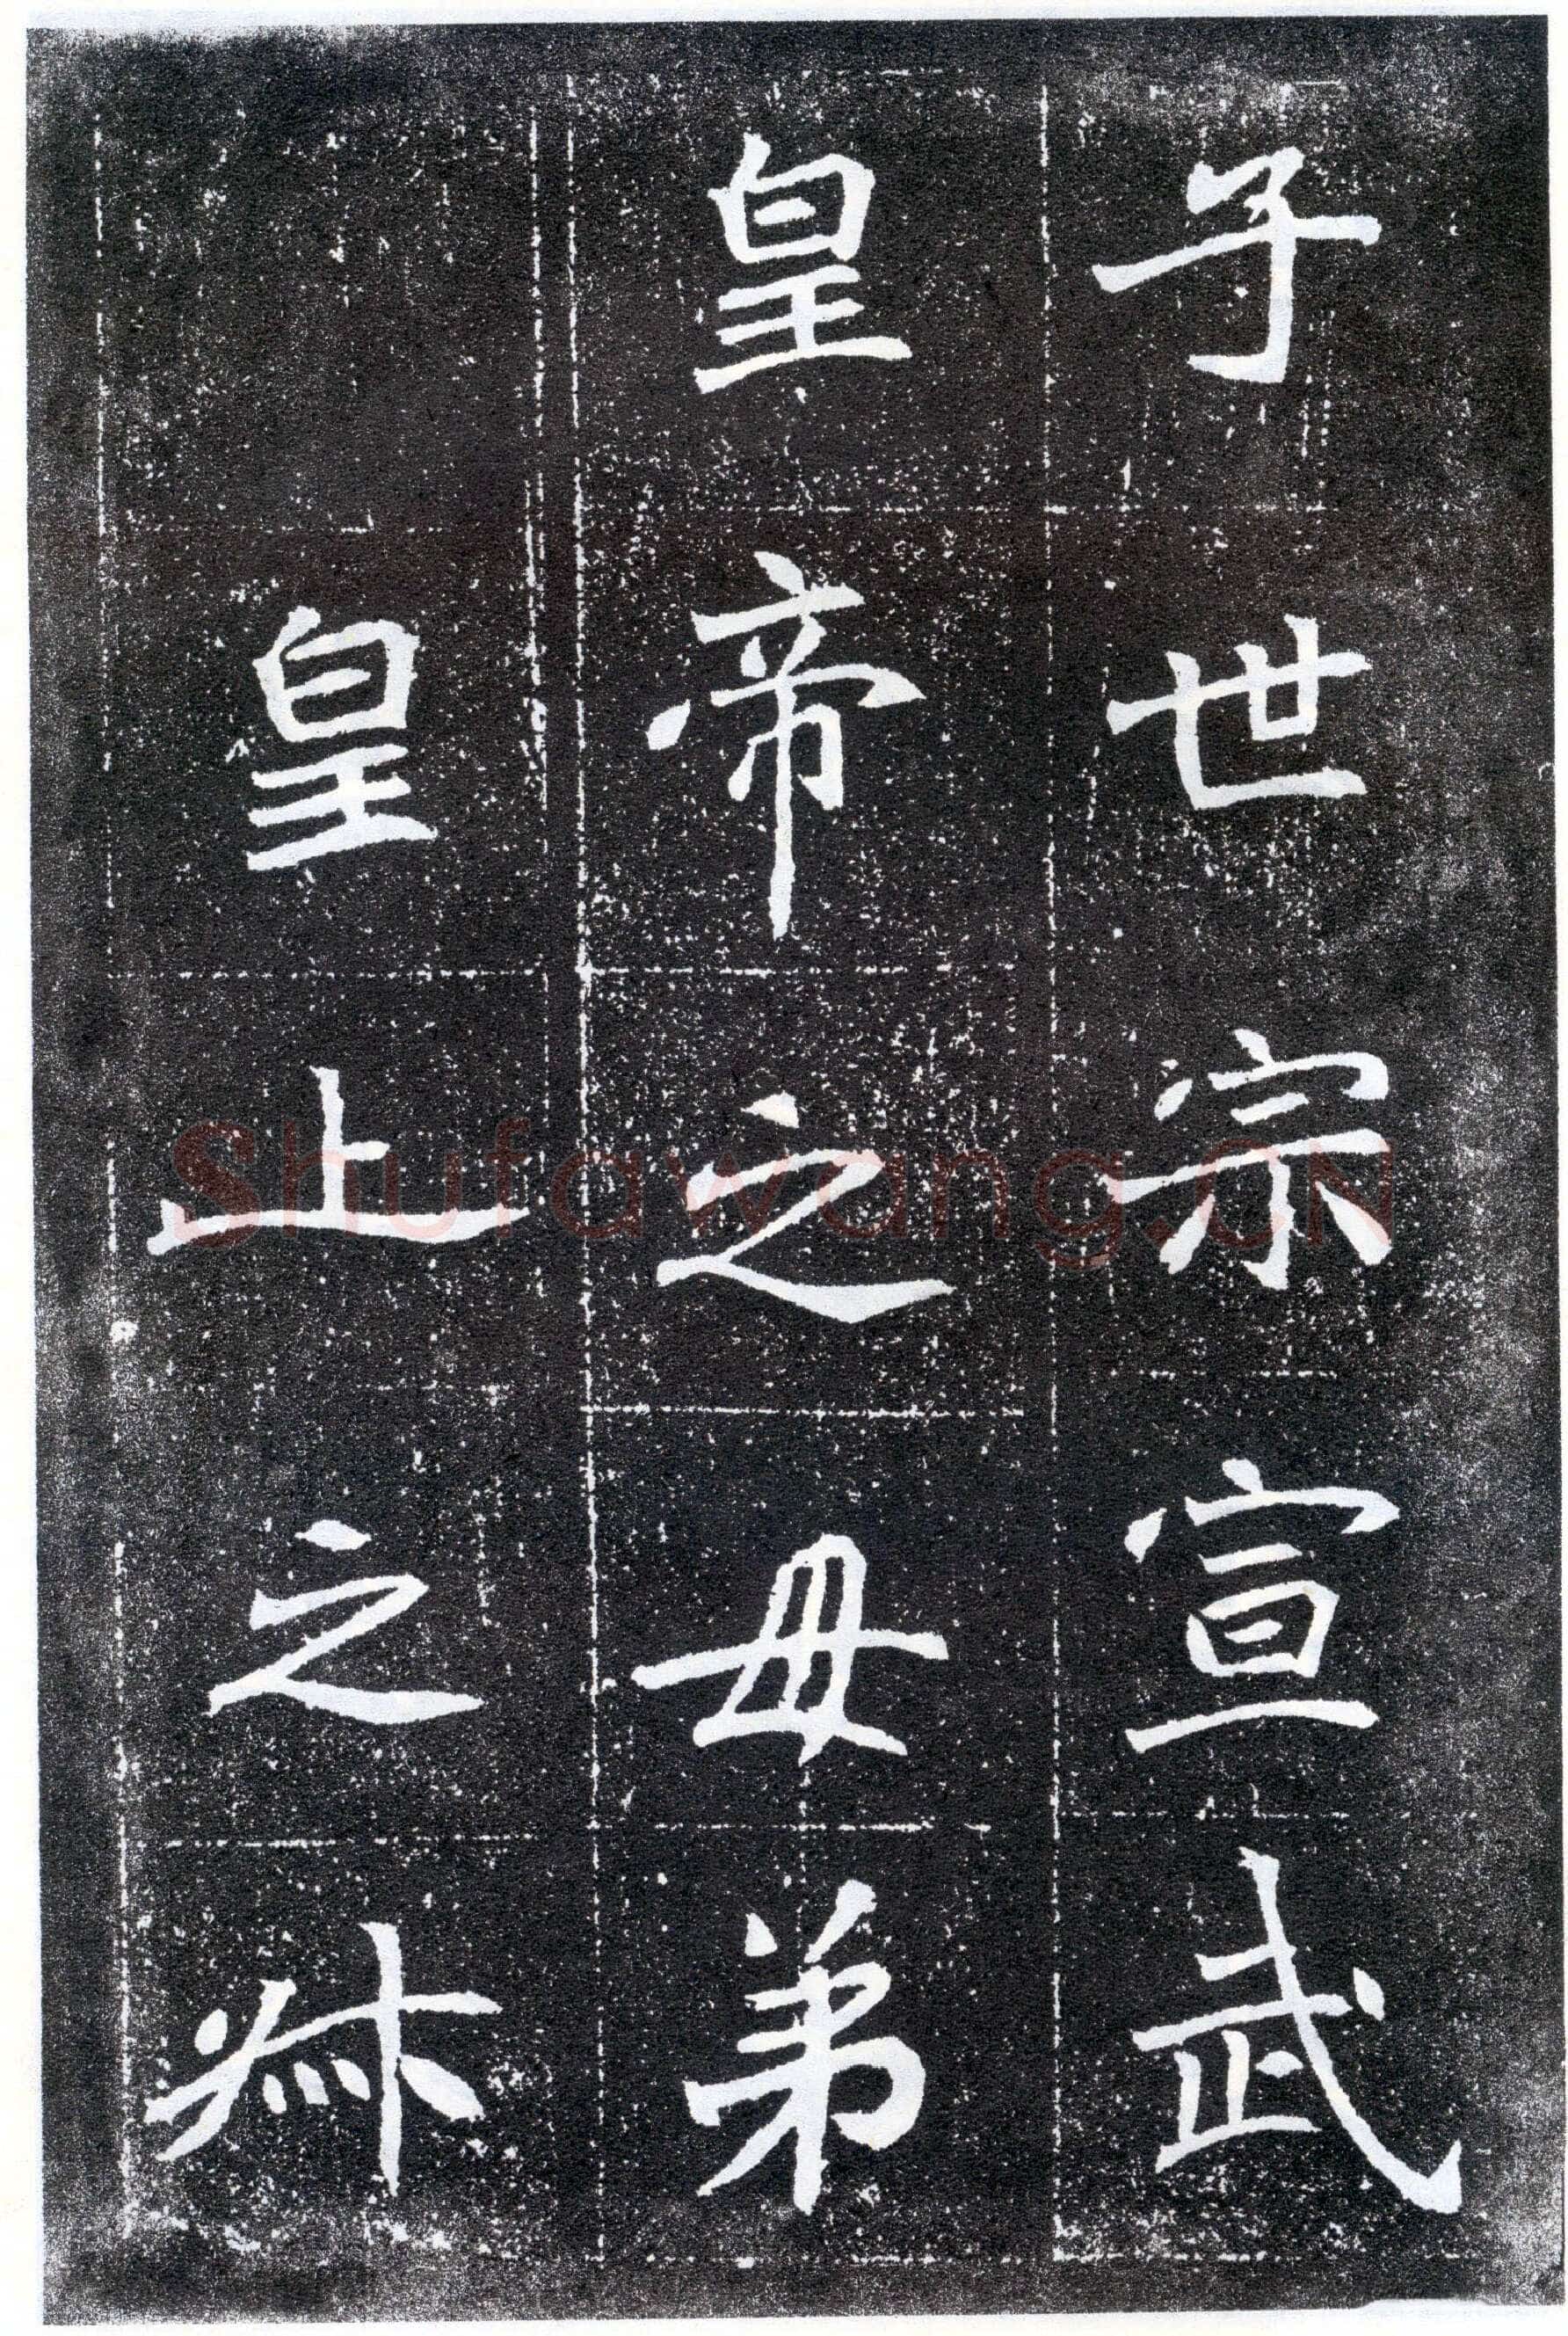 子世宗宣武
皇帝之母弟
皇上之𠦑
Shufawang.CN